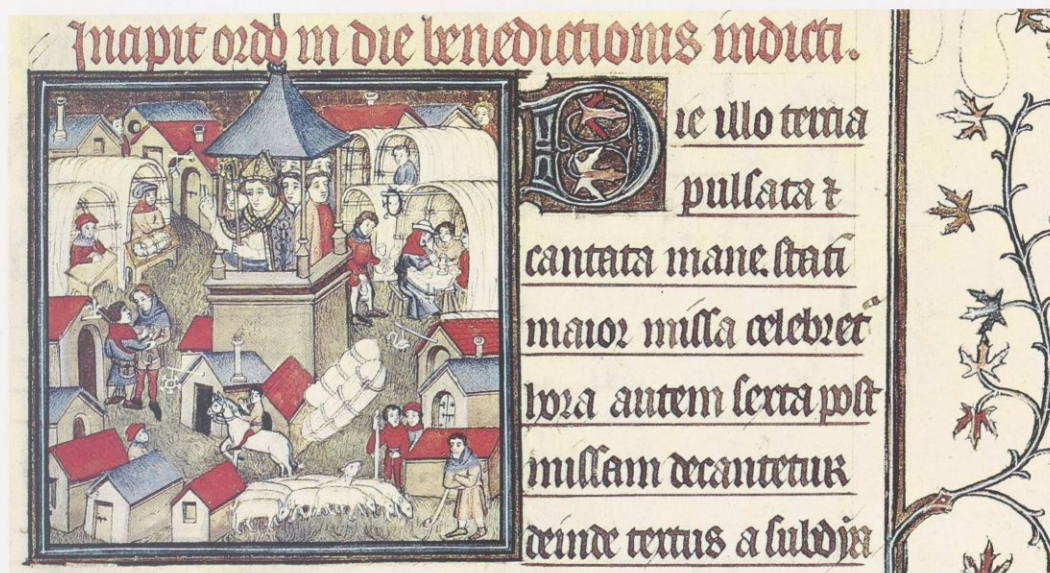 Incipit ordo in die benedictionis indicti.
Die illo tercia
pulsata &
cantata mane. stati
maior missa celebret
hora autem sexta post
missam decantetur
deinde textus a subdia